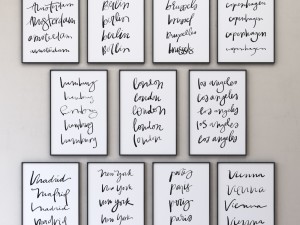 Amsterdam
Amsterdam
amsterdam
amsterdam
Berlin
berlin
berlin
Berlin
Brussels
brussel
Brussels
brussels
copenhagen
copenhagen
copenhagen
copenhagen
hamburg
hamburg
hamburg
hamburg
London
london
london
london
london
los angeles
los angeles
los angeles
los angeles
los angeles
Madrid
madrid
madrid
new york
new york
new york
new york
paris
paris
paris
paris
Vienna
Vienna
Vienna
Vienna